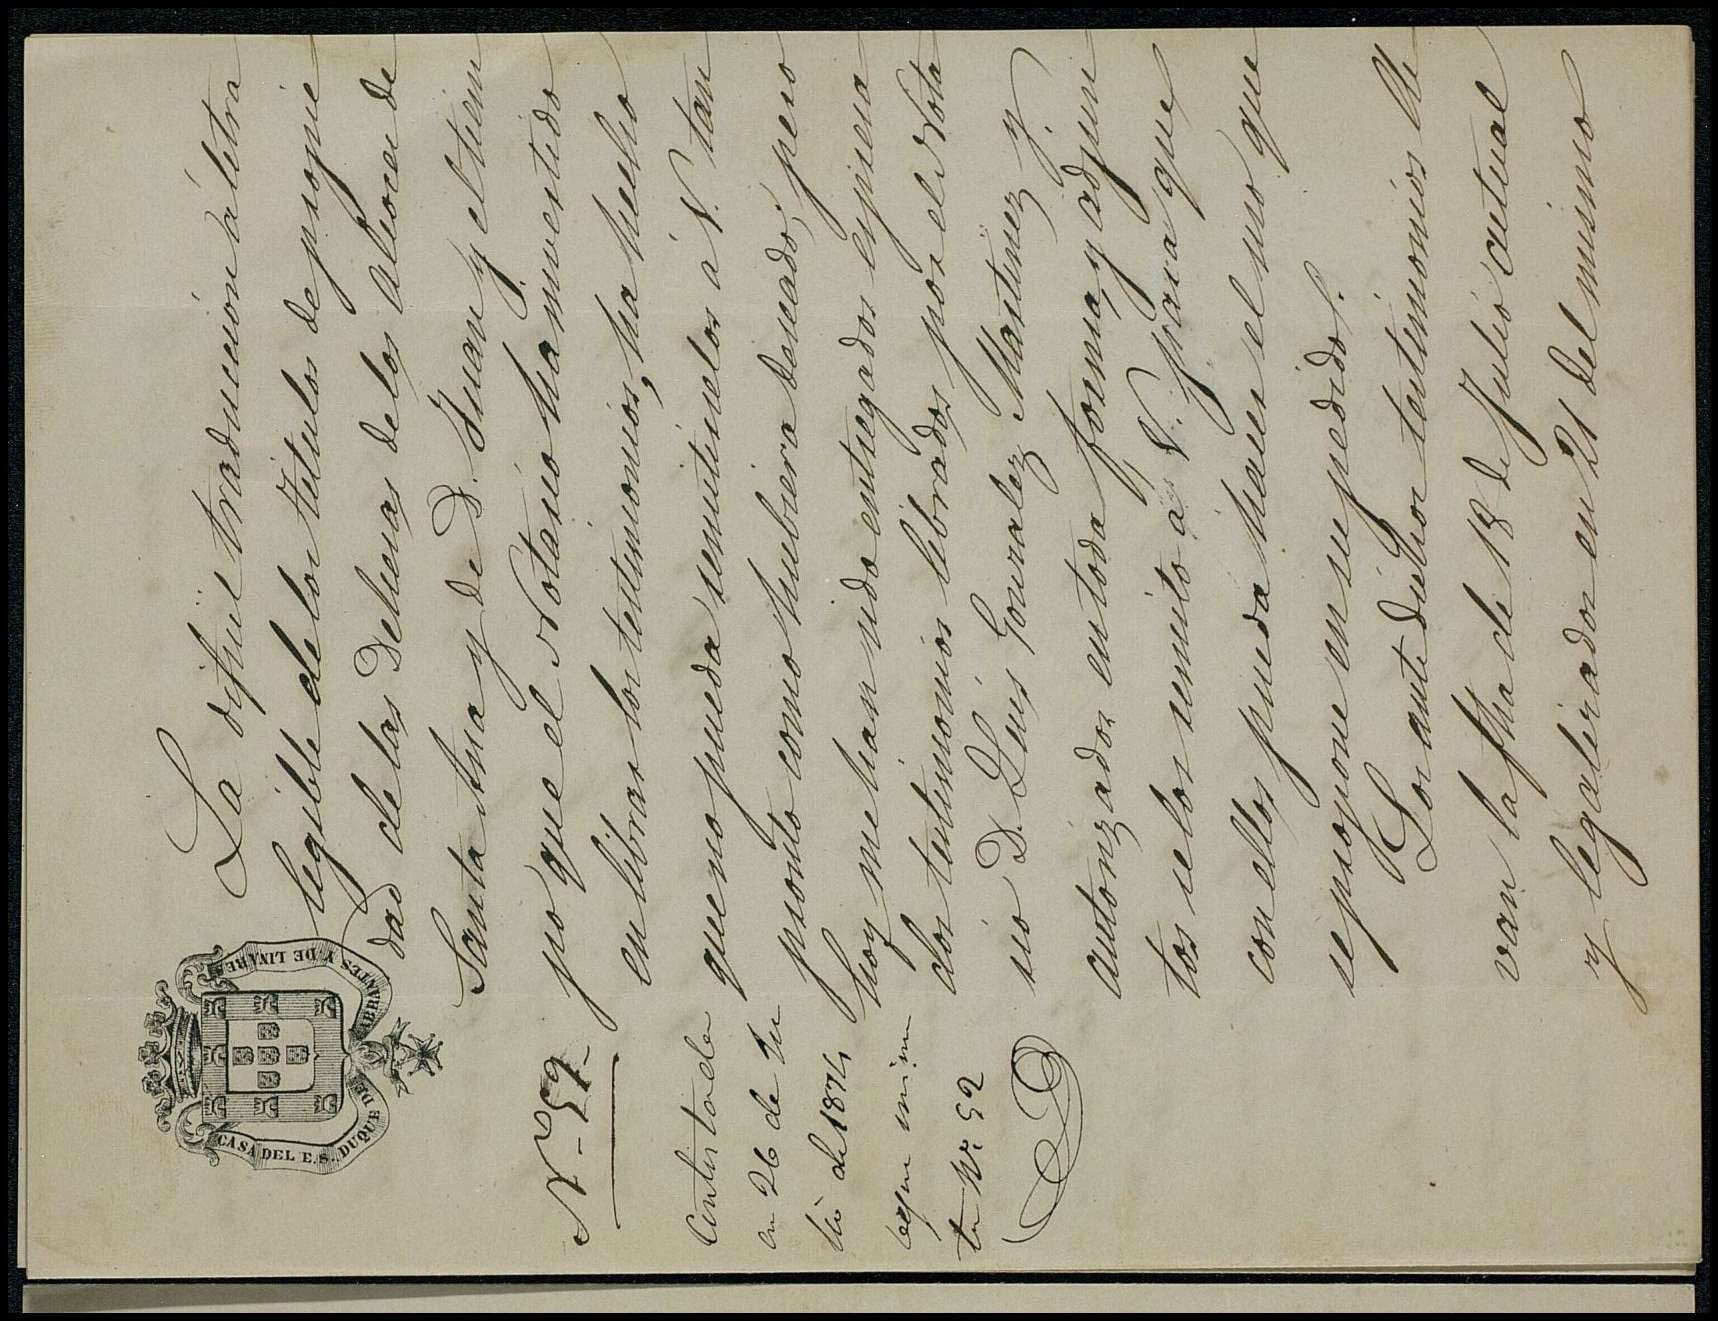 CASA DEL E.S. DUQUE DE ABRANTES Y DE LINARES
Nº 59.
Contestado
en 26 de Ju
lio de 1874
segun minu
ta Nº 52
La dificil traduccion á letra
legible de los titulos de propie
dad de las Dehesas de los Alijares de
Santa Ana y de D. Juan y el tiem
po que el Notario ha invertido
en librar los testimonios, ha hecho
que no pueda remitirselos á V. tan
pronto como hubiera deseado; pero
hoy me han sido entregados espresa
dos testimonios librados por el Nota
rio D. Luis Gonzalez Martinez y
autorizados en toda forma, y adjun
tos se los remito á V. para que
con ellos pueda hacer el uso que
se propone en su pedido.
Los ante dichos testimonios lle
van la fha de 18 de Julio actual
y legalizados en 21 del mismo